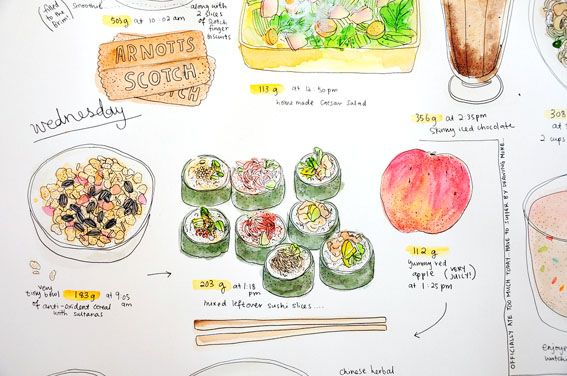 (fried to the brim)
smoothie
503 g at 10:02 am
along with 2 slices of Scotch finger biscuits
ARNOTTS
SCOTCH
113 g at 12:50 pm
home made caesar salad
356 g at 2:35 pm
skinny iced chocolate
308
at
2 cups
wednesday
very
tiny bowl 183 g at 9:05
of anti-oxident cereal am
with sultanas
203 g at 1:18
pm
mixed leftover sushi slices....
112 g
yummy red
apple (VERY JUICY!)
at 1:25 pm
OFFICIALLY ATE TOO MUCH TODAY. HAVE TO SUFFER BY DRAWING MORE.
Enjoye
watchi
chinese herbal